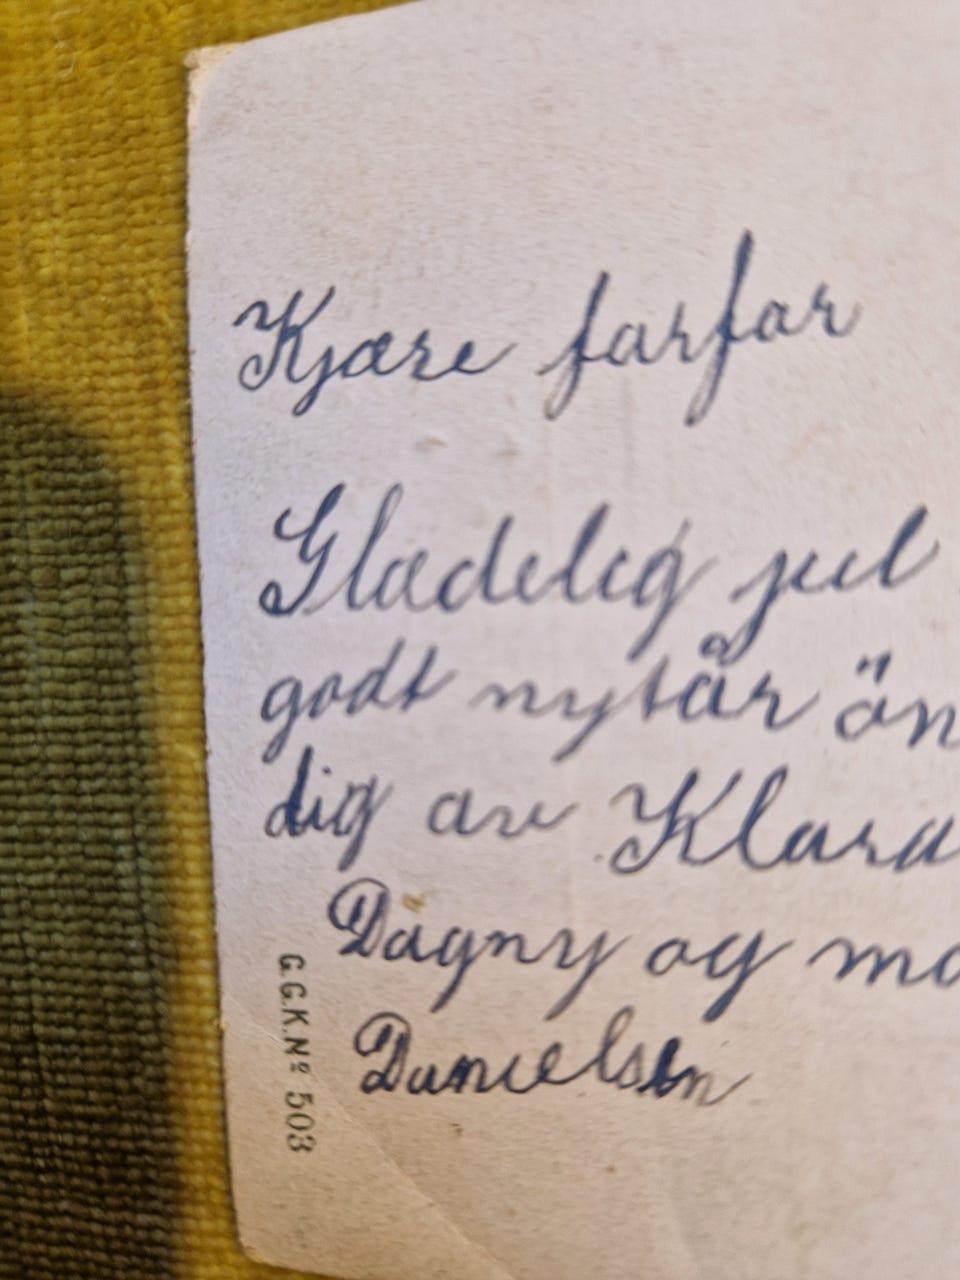 Kjære farfar
Glædelig jul
godt nytår ön
dig av Klara
Dagny og mo
Danielsen
G.G.K.Nº 503